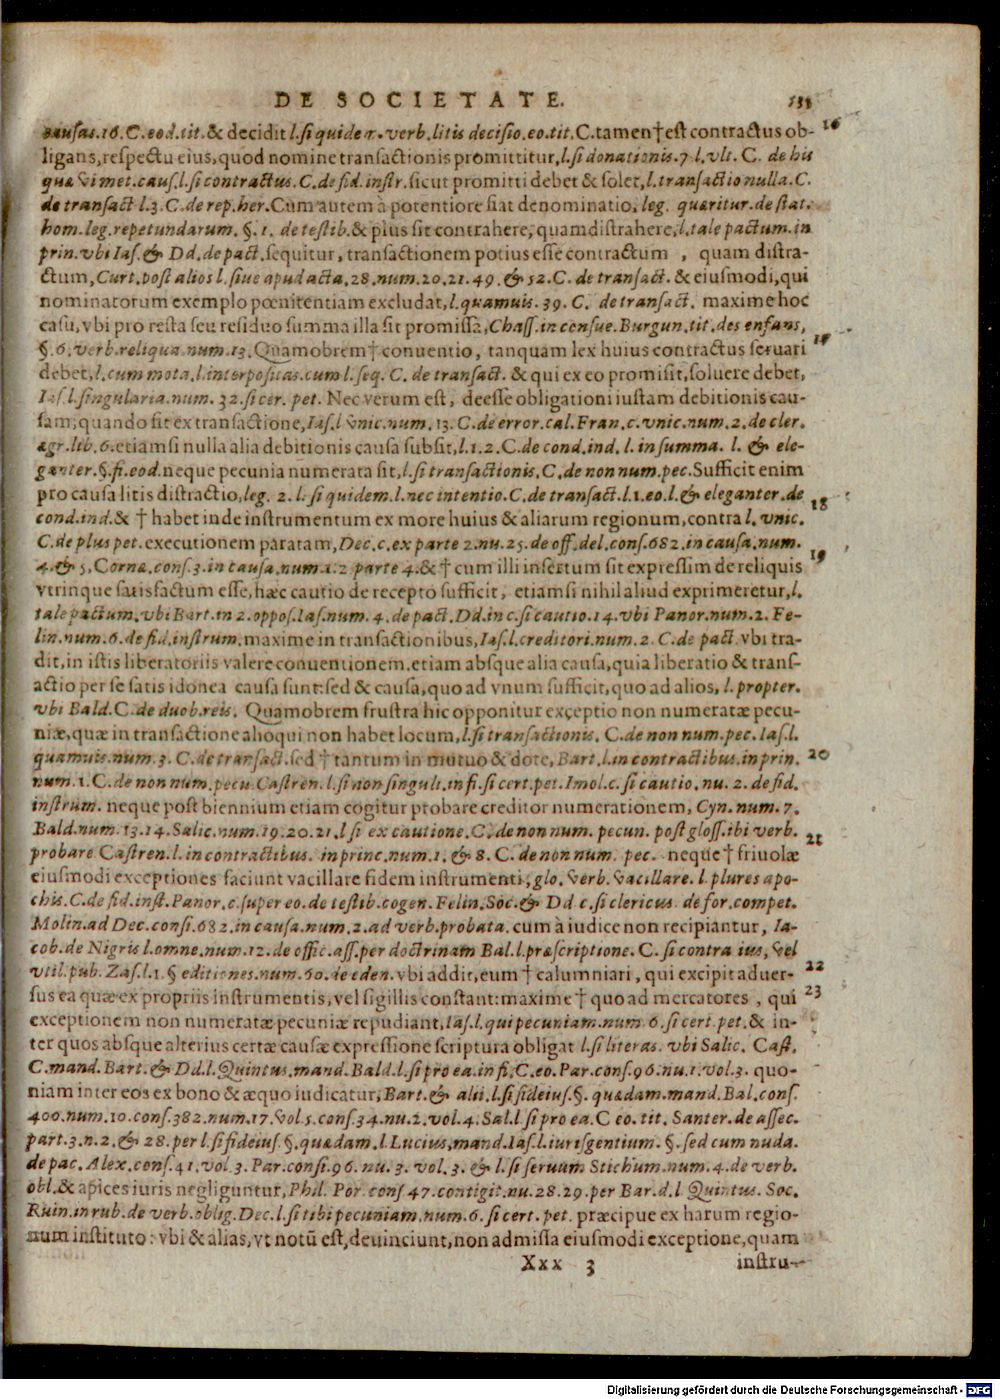 DE SOCIETATE.
causas.16.C.eod.tit.& decidit l.si quidem.verb.litis decisio.eo.tit.C.tamen†est contractus ob- 16
ligans,respectu eius,quod nomine transactionis promittitur,l.si donationis.7 l.vlt. C. de his
quæ vi met.caus.l.si contractus.C.de fid.instr.sicut promitti debet & solet,l.transactio nulla.C.
de transact l.3.C.de rep.her.Cum autem à potentiore fiat denominatio, leg. quæritur.de stat.
hom.leg.repetundarum.§.1. de testib.& plus sit contrahere, quam distrahere,l.tale pactum.in
prin.vbi Ias.& Dd.de pact.sequitur, transactionem potius esse contractum , quam distra-
ctum,Curt.post alios l.siue apud acta.28.num.20.21.49.& 52.C.de transact.& eiusmodi,qui
nominatorum exemplo pœnitentiam excludat,l.quamuis.39.C. de transact. maxime hoc
casu,vbi pro resta seu residuo summa illa sit promissa,Chass.in consue.Burgun.tit.des enfans,
§.6.verb.reliqua.num.13.Quamobrem† conuentio, tanquam lex huius contractus seruari 17
debet,l.cum mota.l.interpositas.cum l.seq. C. de transact. & qui ex eo promisit,soluere debet,
Ias.l.singularia.num. 32.si cer. pet. Nec verum est, deesse obligationi iustam debitionis cau-
sam,quando fit ex transactione,Ias.l vnic.num. 13. C.de error.cal.Fran.c.vnic.num.2.de cler.
ægr.lib.6.etiamsi nulla alia debitionis causa subsit,l.1.2.C.de cond.ind. l. in summa. l. & ele-
ganter.§.fi.eod.neque pecunia numerata sit,l.si transactionis.C.de non num.pec.Sufficit enim
pro causa litis distractio,leg. 2. l. si quidem.l.nec intentio.C.de transact.l.1.eo.l.& eleganter.de
cond.ind.& † habet inde instrumentum ex more huius & aliarum regionum,contra l.vnic. 18
C.de plus pet.executionem paratam,Dec.c.ex parte 2.nu.25.de off.del.cons.682.in causa.num.
4.& 5.Corne.cons.3.in causa.num.1.2 parte 4.& † cum illi insertum sit expressim de reliquis 19
vtrinque satisfactum esse,hæc cautio de recepto sufficit, etiamsi nihil aliud exprimeretur,l.
tale pactum.vbi Bart.in 2.oppos.Ias.num. 4. de pact. Dd.in c.si cautio.14.vbi Panor.num.2. Fe-
lin.num.6.de fid.instrum.maxime in transactionibus,Ias.l.creditori.num.2. C.de pact.vbi tra-
dit,in istis liberatoriis valere conuentionem.etiam absque alia causa,quia liberatio & trans-
actio per se satis idonea causa sunt:sed & causa,quo ad vnum sufficit,quo ad alios, l.propter.
vbi Bald.C.de duob.reis. Quamobrem frustra hic opponitur exceptio non numeratæ pecu-
niæ,quæ in transactione alioqui non habet locum,l.si transactionis. C.de non num.pec.Ias.l.
quamuis.num.3. C.de transact.sed † tantum in mutuo & dote, Bart.l.in contractibus.in prin. 20
num.1.C.de non num.pecu.Castren.l.si non singuli.in fi.si cert.pet.Imol.c.si cautio.nu.2.de fid.
instrum. neque post biennium etiam cogitur probare creditor numerationem, Cyn.num.7.
Bald.num.13.14.Salic.num.19.20.21.l si ex cautione.C.de non num. pecun. post gloss.ibi verb.
probare Castren.l.in contractibus. in princ.num.1.& 8. C.de non num. pec. neque† friuolæ 21
eiusmodi exceptiones faciunt vacillare fidem instrumenti,glo.verb.vacillare.l plures apo-
chis.C.de fid.inst.Panor.c.super eo.de testib.cogen.Felin.Soc.& Dd c.si clericus.de for.compet.
Molin.ad Dec.consi.682.in causa.num.2.ad verb.probata.cum à iudice non recipiantur, Ia-
cob.de Nigris l.omne.num.12.de offic.ass.per doctrinam Bal.l.præscriptione.C.si contra ius,vel
vtil.pub.Zas.l.1.§ editiones.num.60.de eden.vbi addit,eum † calumniari, qui excipit aduer- 22
sus ea quæ ex propriis instrumentis,vel sigillis constant:maxime † quo ad mercatores , qui 23
exceptionem non numeratæ pecuniæ repudiant,Ias.l.qui pecuniam.num.6.si cert.pet.& in-
ter quos absque alterius certæ causæ expressione scriptura obligat l.si literas. vbi Salic. Cast.
C.mand.Bart.& Dd.l.Quintus.mand.Bald.l.si pro ea.in fi.C.eo.Par.cons.96.nu.1.vol.3. quo-
niam inter eos ex bono & æquo iudicatur, Bart.& alii l.si fideius.§.quædam.mand.Bal.cons.
400.num.10.cons.382.num.17.vol.5.cons.34.nu.2.vol.4.Sal.l si pro ea.C eo.tit. Santer.de assec.
part.3.n.2.& 28.per l.si fideius.§.quædam.l.Lucius.mand.Ias.l.iurisgentium. §.sed cum nuda.
de pac. Alex.cons.41.vol.3. Par.consi.96. nu.3. vol.3.& l.si seruum Stichum.num.4.de verb.
obl.& apices iuris negliguntur,Phil. Por.cons 47.contigit.nu.28.29.per Bar.d.l Quintus. Soc.
Ruin.in rub.de verb.oblig.Dec.l.si tibi pecuniam.num.6.si cert.pet. præcipue ex harum regio-
num instituto: vbi & alias,vt notū est,deuinciunt,non admissa eiusmodi exceptione,quam
Xxx 3 instru-
Digitalisierung gefördert durch die Deutsche Forschungsgemeinschaft - DFG